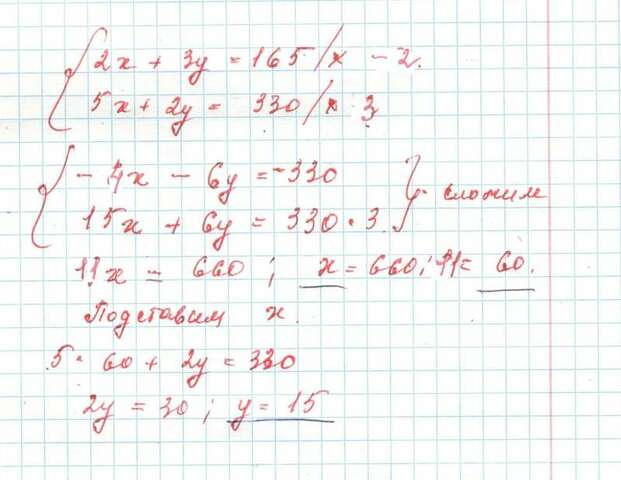 2x + 3y = 165 / x - 2.
5x + 2y = 330 / x 3
- 4x - 6y = -330
15x + 6y = 330 · 3 } сложим
11x = 660 ; x = 660 : 11 = 60.
Подставим x.
5 · 60 + 2y = 330
2y = 30 ; y = 15